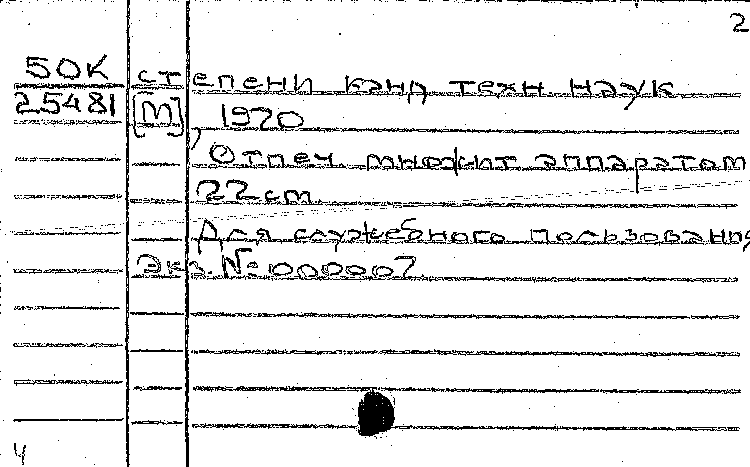 2
50К степени канд техн наук
25481 [М], 1970
Отпеч. множит аппаратом
22 cm
Для служебного пользования
Экз. № 000007
4